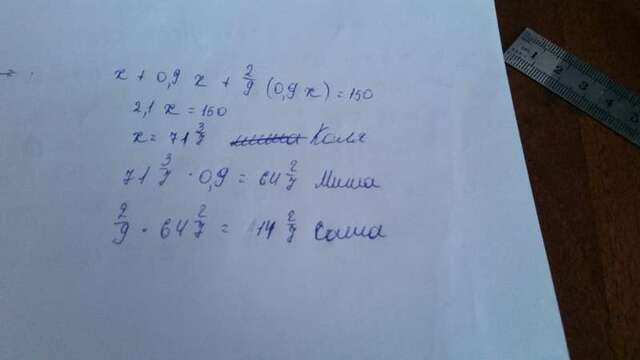 x + 0,9 x + 2/9 (0,9 x) = 150
2,1 x = 150
x = 71 3/7 Коля
71 3/7 · 0,9 = 64 2/7 Миша
2/9 · 64 2/7 = 14 2/7 Саша
1 2 3 4 5